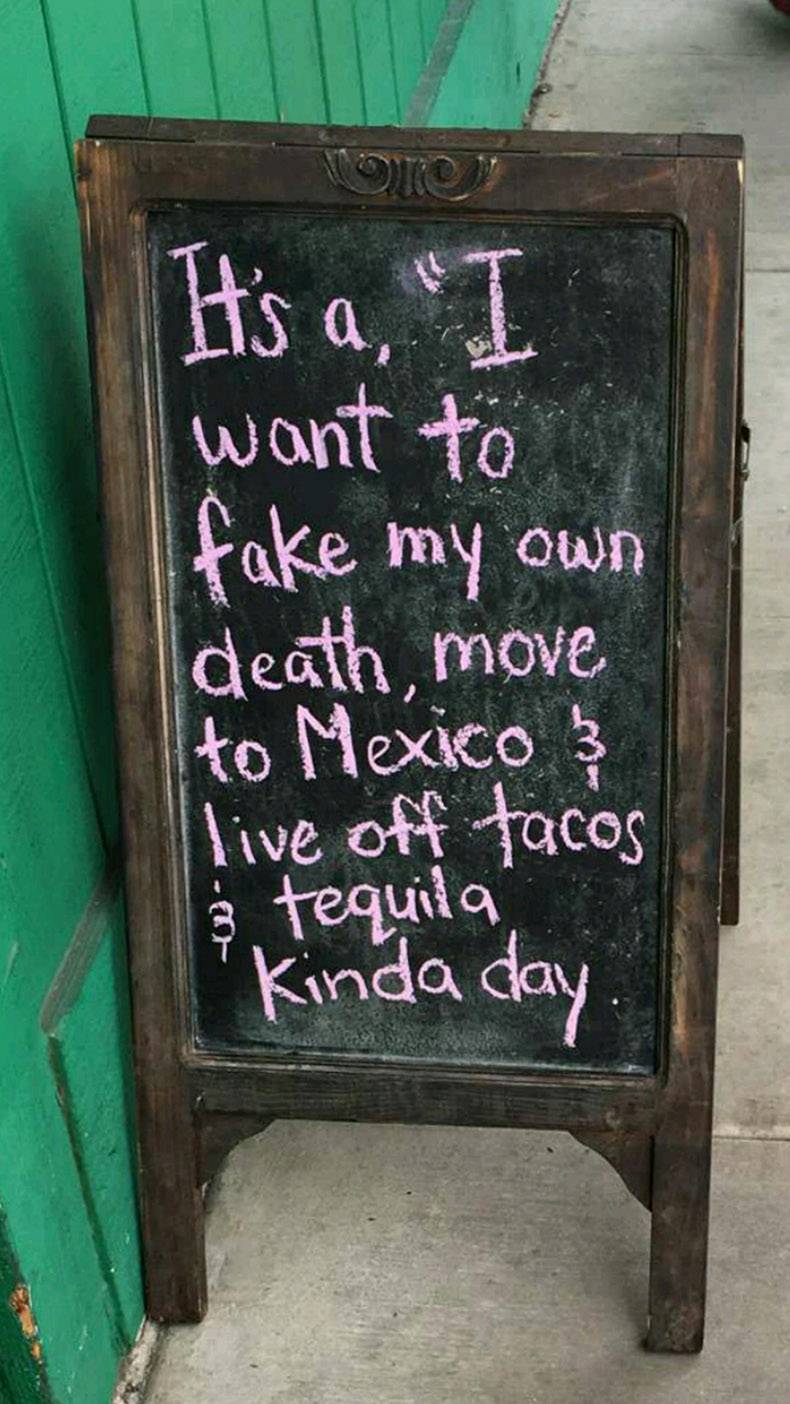 It's a, "I
want to
fake my own
death, move
to Mexico &
live off tacos
& tequila
kinda day